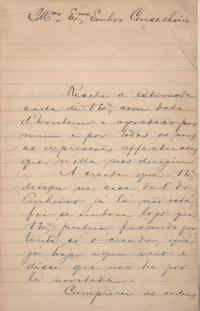 Illmo. Exmo. Senhor Conselheiro
Recebi a estimada
carta de V. Ex. com data
d'hontem e agradeço por
mim e por todos os meus
as expressões affectuosas
que nella nos dirigem
A creada que V. Ex.
na casa da
já lá não está
foi-se embora logo que
V. Ex.
e o creado, que
logo aqui veio e
disse que não ha por
lá novidade.
Cumprirei as ordens